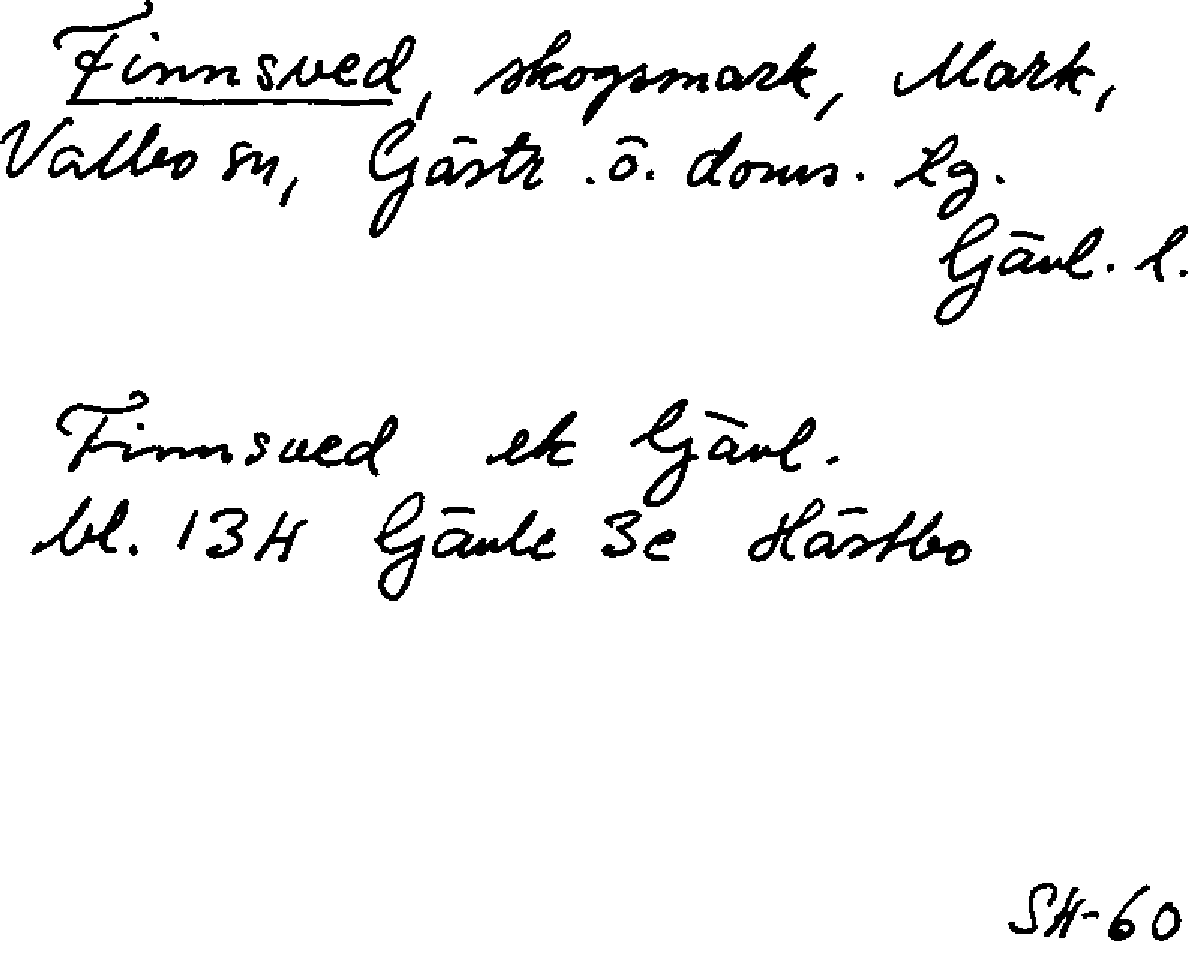 Finnsved, skogsmark, Mark,
Valbo sn, Gästr. ö. doms. tg.
Gävl. l.
Finnsved ek Gävl.
bl. 13H Gävle 3c Hästbo
SH-60